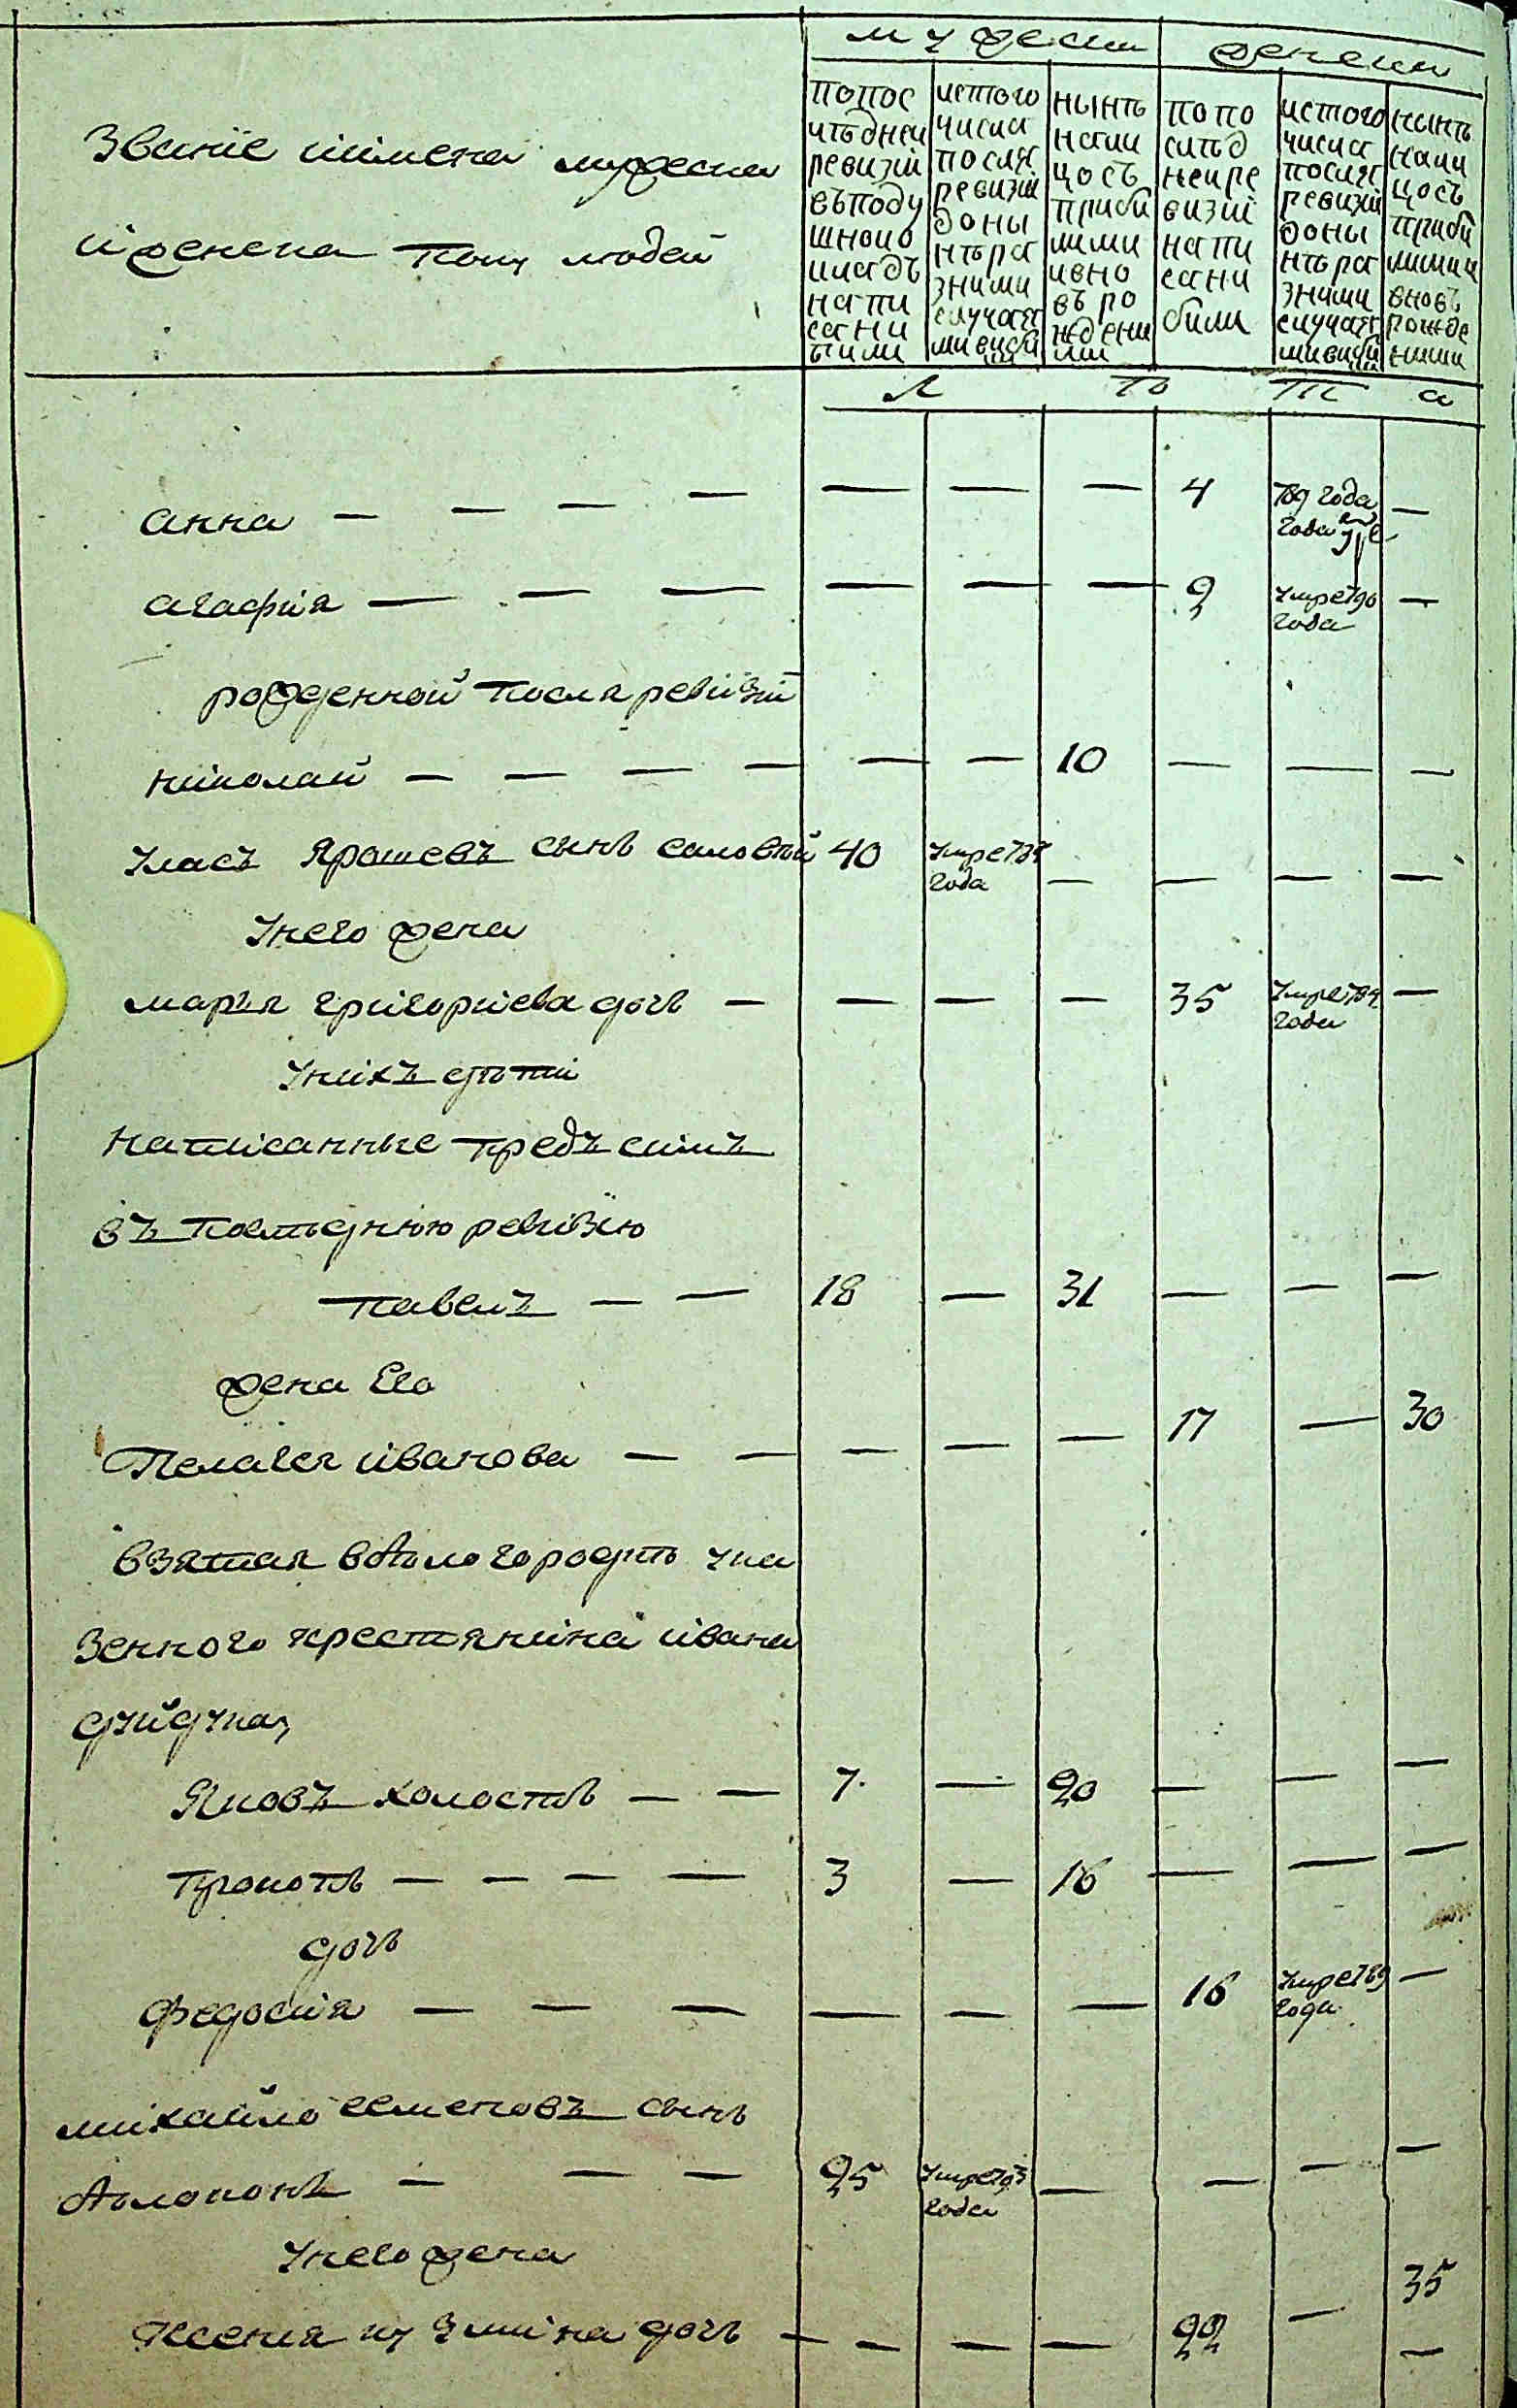 мужески женски
Званіе иімена мужеска
иженска полу людей
попос
лѣдней
ревизіи
въподу
шномо
кладъ
напи
сани
были
истого
числа
послѣ
ревизіи
доны
нѣра
зними
случая
ми выбы
нынѣ
нали
цось
прибы
лими
ивно
въ ро
жденн
ими
по по
слѣд
ней ре
визіи
напи
сани
били
истого
числа
послѣ
ревизіи
доны
нѣра
зними
случая
ми выбы
нынѣ
нали
цось
прибы
лими и
вновъ
рожде
ними
л ѣ т а
анна — — — — — — — 4 789 года —
года
агафия — — — — — — 9 умре 790 —
года
рожденной посля ревизіи
ніколай — — — — — — 10 — — —
власъ Ярошевъ сынъ соловъй 40 умре 78
года — — — —
Унего жена
марья григориева дочь — — — — 35 умре 789 —
года
Унихъ дѣти
написанные предъ симъ
въ последнюю ревизію
павелъ — — 18 — 31 — — —
жена Его
Пелагея иванова — — — — — 17 — 30
взятая в городѣ ука
зенного крестянина ивана
Яковъ холостъ — — 7 — 20 — — —
прокопъ — — — — 3 — 16 — — —
дочь
федосия — — — — — — 16 умре 789 —
года
михайло семеновъ сынъ
— — — 25 умре 793 — — — —
года
Унего жена
Ксения кузмина дочь — — — — 22 — 35
—